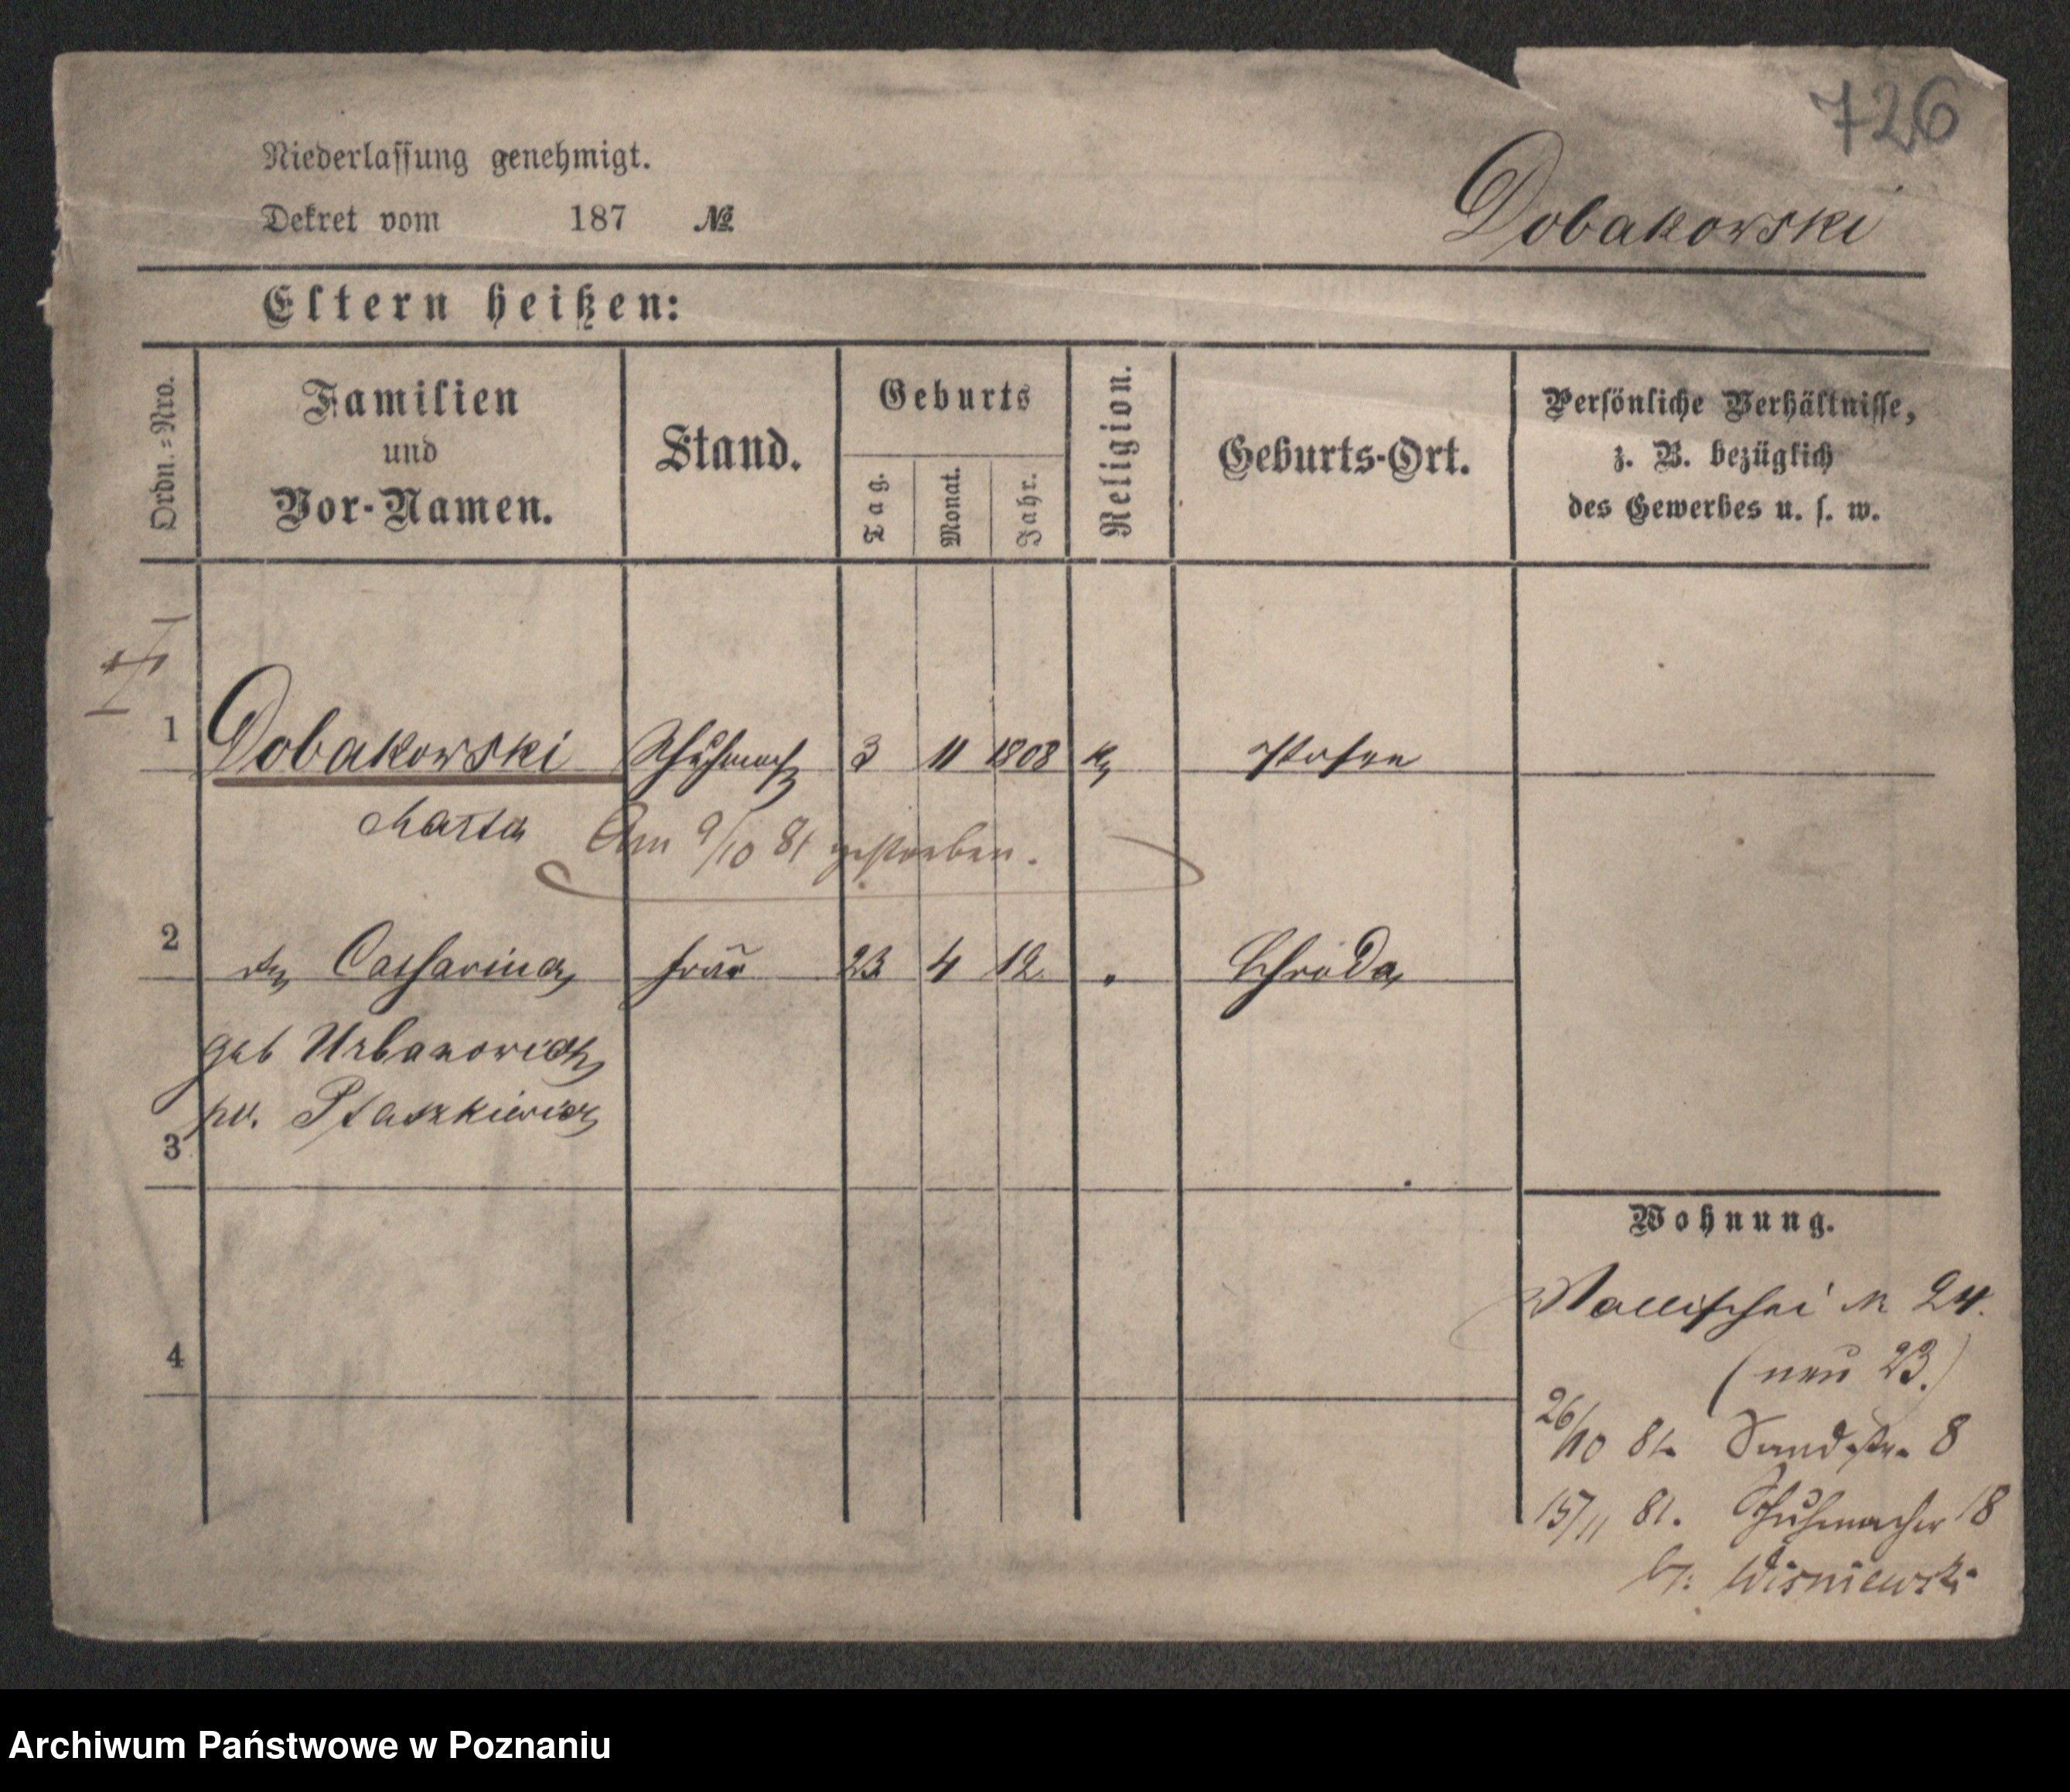 726
Niederlassung genehmigt.
Dekret vom 187 №
Dobakowski
Eltern heißen:
Ordn.=Nro.
Familien
und
Vor-Namen.
Stand.
Geburts
Tag.
Monat.
Jahr.
Religion.
Geburts-Ort.
Persönliche Verhältnisse,
z. B. bezüglich
des Gewerbes u. s. w.
1 Dobakowski Schuhmach 3 11 1808 k Posen
Am 9/10 81 gestorben.
2 Catharina Frau 23 4 12 " Schroda
geb Urbanowicz
pv. Ptaszkiewicz
3
4
Wohnung.
Wallischei № 24.
(neu 23.)
26/10 81. Sandstr. 8
15/11 81. Schuhmacher 18
b: Wisniewski
Archiwum Państwowe w Poznaniu